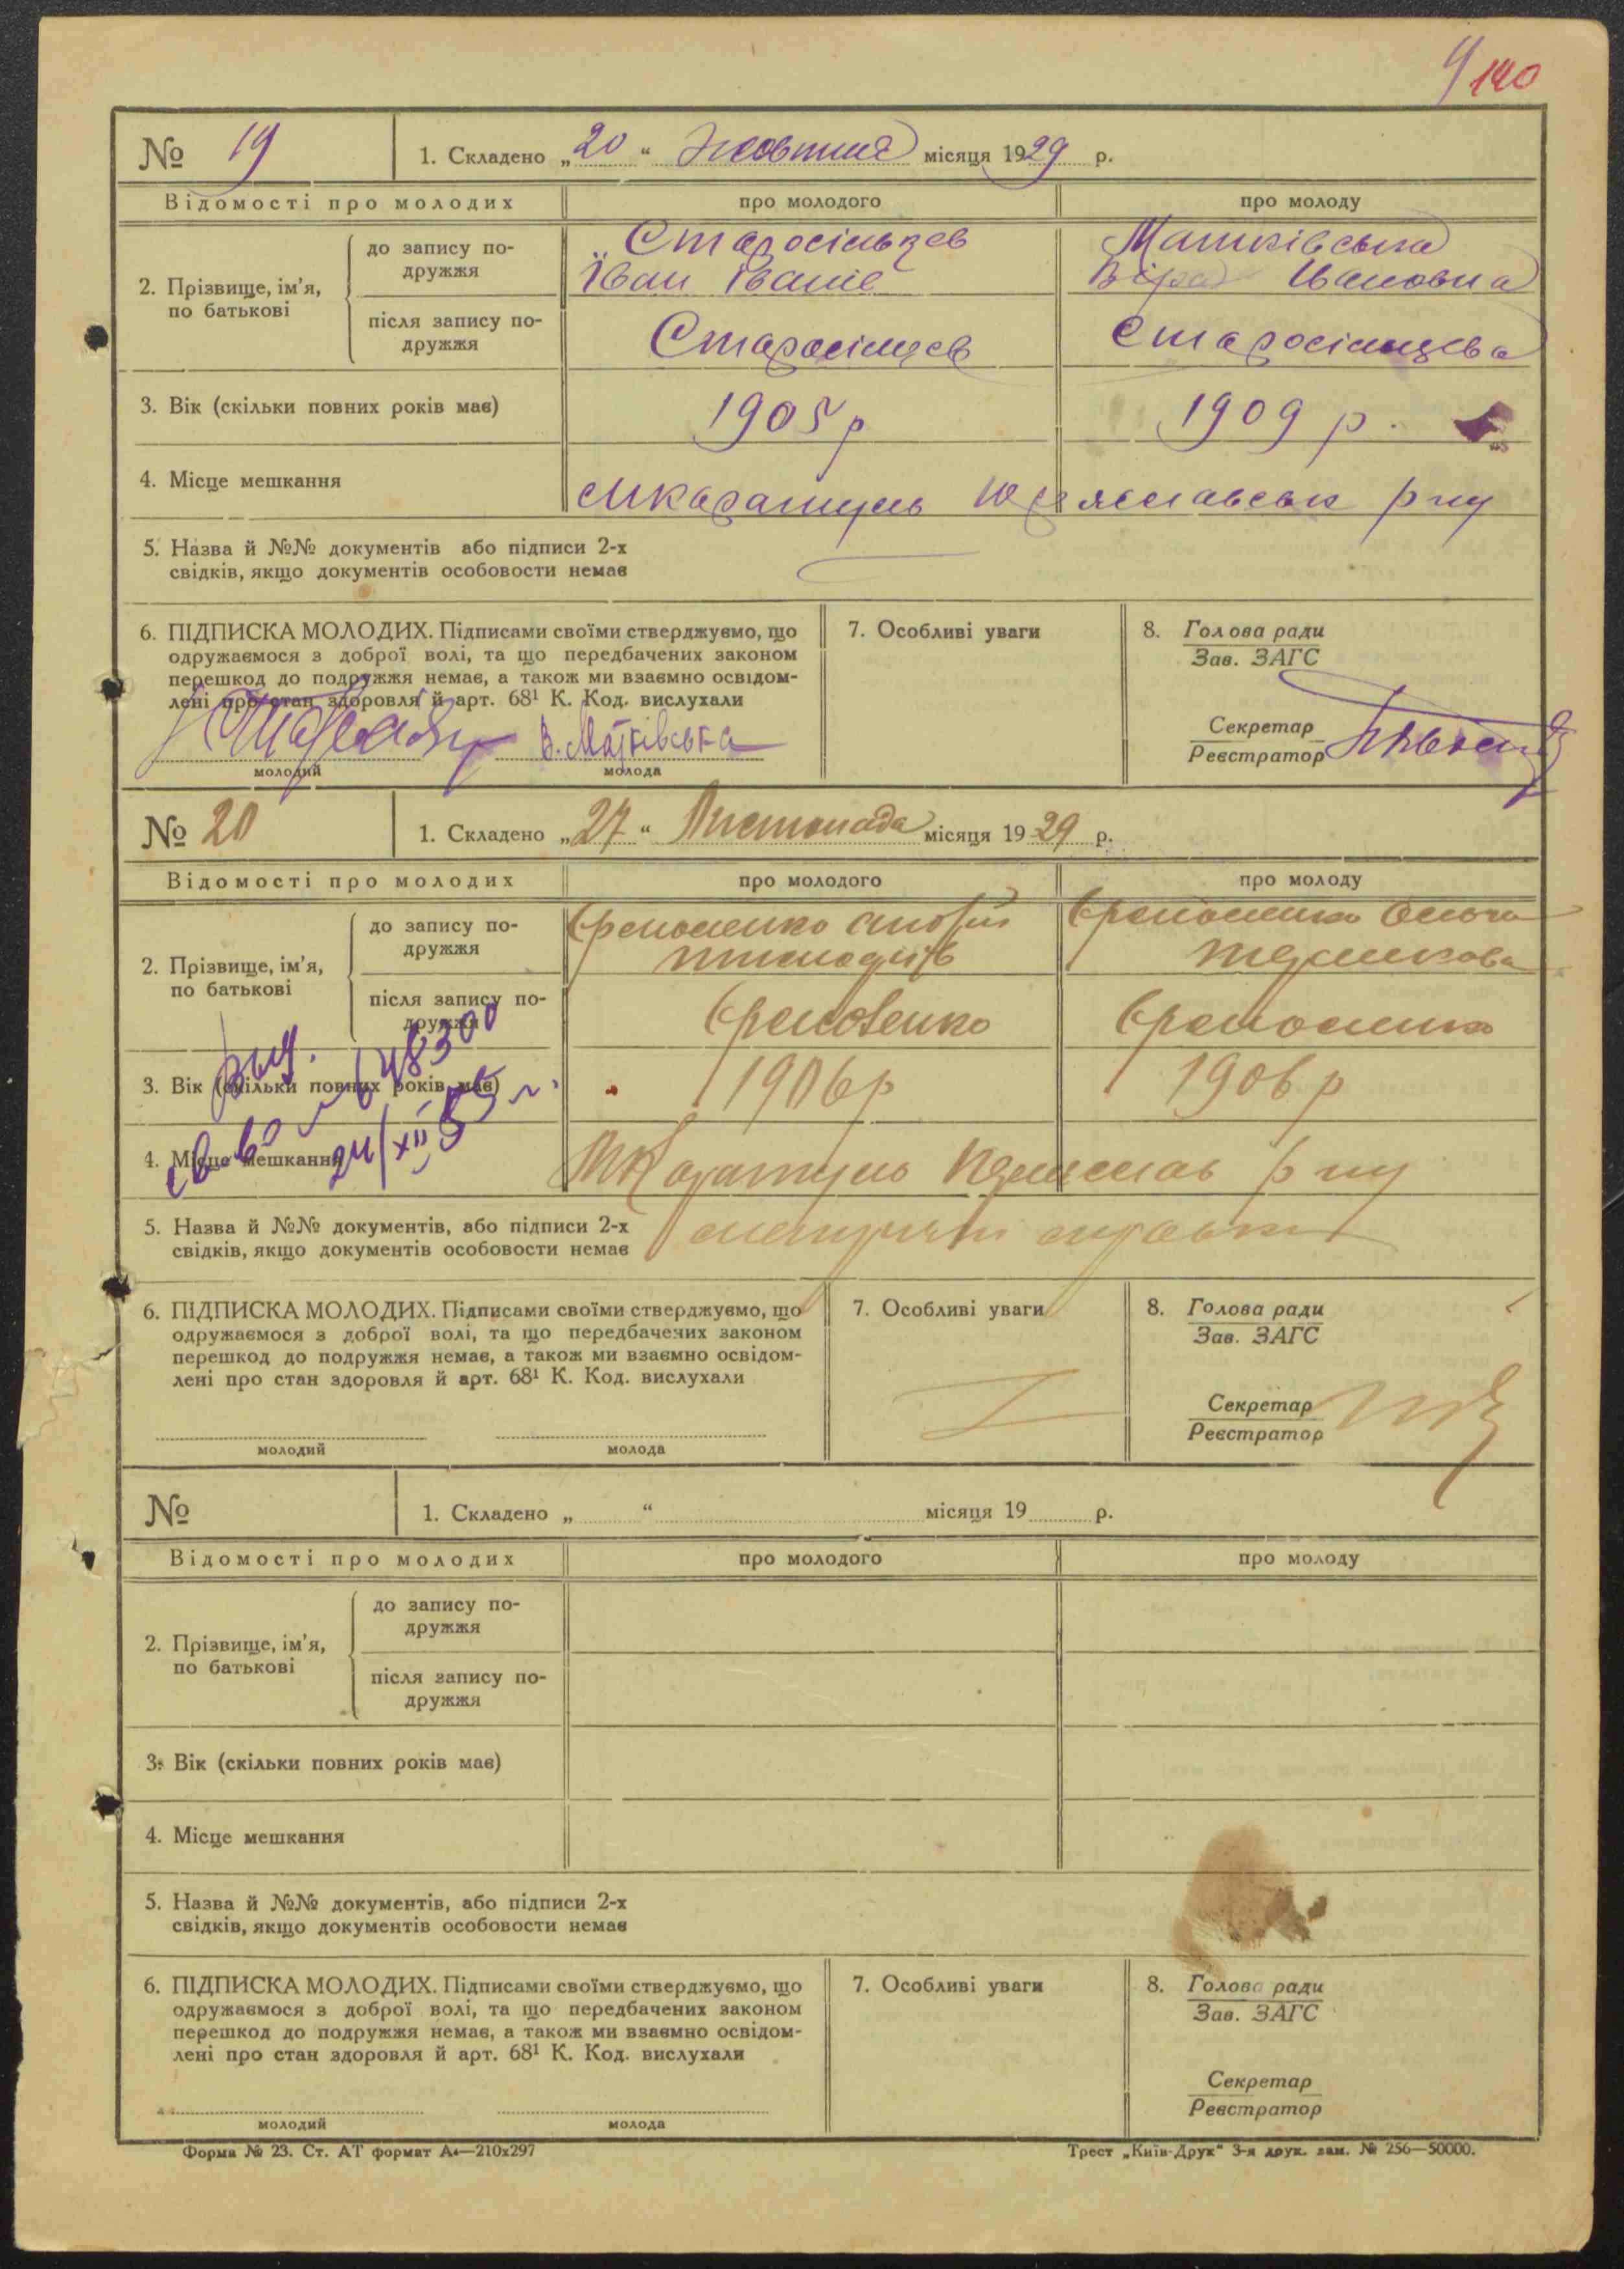 140
№ 19
1. Складено „20“ Жовтня місяця 1929 р.
Відомості про молодих
про молодого
про молоду
2. Прізвище, ім'я,
по батькові
до запису по-
дружжя
Старосільцев
Іван Іванів
Матківська
Віра Івановна
після запису по-
дружжя
Старосілцев
Старосілцева
3. Вік (скільки повних років має)
1905 р
1909 р.
4. Місце мешкання
мкаратуль р ну
5. Назва й №№ документів або підписи 2-х
свідків, якщо документів особовости немає
6. ПІДПИСКА МОЛОДИХ. Підписами своїми стверджуємо, що
одружаємося з доброї волі, та що передбачених законом
перешкод до подружжя немає, а також ми взаємно освідом-
лені про стан здоровля й арт. 68¹ К. Код. вислухали
В. Матківська
молодий
молода
7. Особливі уваги
8. Голова ради
Зав. ЗАГС
Секретар
Реєстратор
№ 20
1. Складено „27“ Листопада місяця 1929 р.
Відомості про молодих
про молодого
про молоду
2. Прізвище, ім'я,
по батькові
до запису по-
дружжя
після запису по-
дружжя
3. Вік (скільки повних років має)
1906 р
1906 р
4. Місце мешкання
мКаратуль р ну
выд.
св во 648300
24/XII
5. Назва й №№ документів, або підписи 2-х
свідків, якщо документів особовости немає
6. ПІДПИСКА МОЛОДИХ. Підписами своїми стверджуємо, що
одружаємося з доброї волі, та що передбачених законом
перешкод до подружжя немає, а також ми взаємно освідом-
лені про стан здоровля й арт. 68¹ К. Код. вислухали
молодий
молода
7. Особливі уваги
8. Голова ради
Зав. ЗАГС
Секретар
Реєстратор
№
1. Складено „ “ місяця 19 р.
Відомості про молодих
про молодого
про молоду
2. Прізвище, ім'я,
по батькові
до запису по-
дружжя
після запису по-
дружжя
3. Вік (скільки повних років має)
4. Місце мешкання
5. Назва й №№ документів, або підписи 2-х
свідків, якщо документів особовости немає
6. ПІДПИСКА МОЛОДИХ. Підписами своїми стверджуємо, що
одружаємося з доброї волі, та що передбачених законом
перешкод до подружжя немає, а також ми взаємно освідом-
лені про стан здоровля й арт. 68¹ К. Код. вислухали
молодий
молода
7. Особливі уваги
8. Голова ради
Зав. ЗАГС
Секретар
Реєстратор
Форма № 23. Ст. АТ формат А₄—210х297
Трест „Київ-Друк“ 3-я друк. зам. № 256—50000.